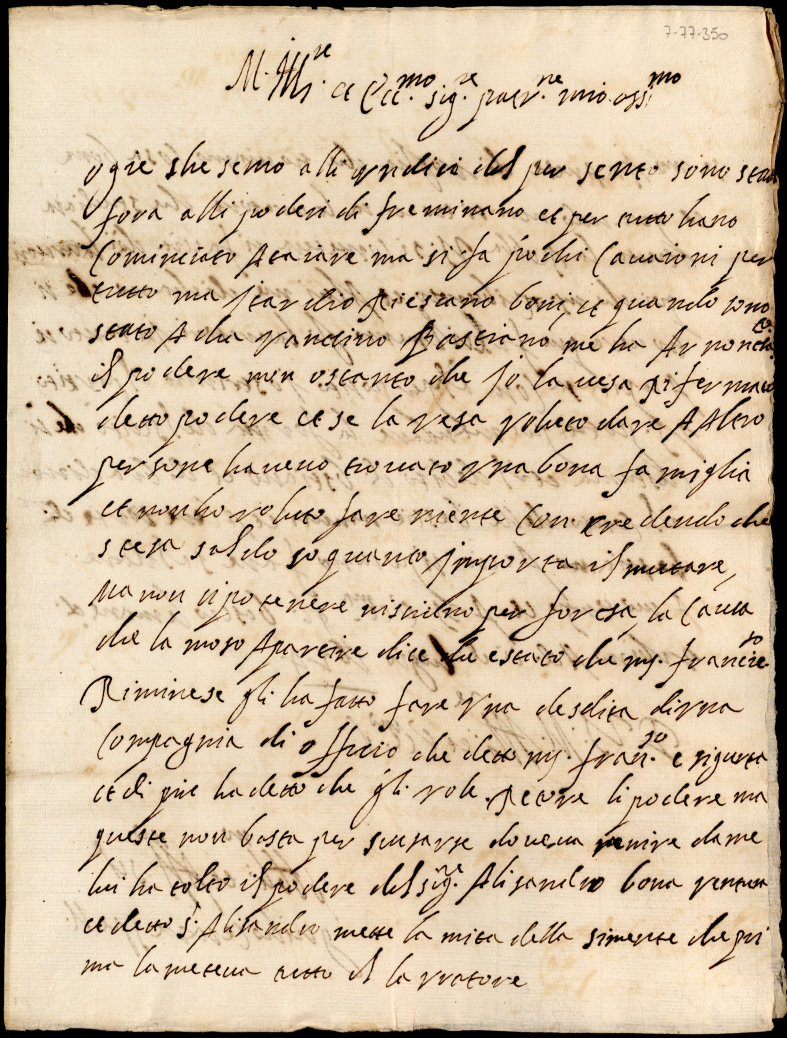 7-77-350
M. Ill.re et Ecc.mo sig.re patr.ne mio oss.mo
ogie che semo alli undici del per sento sono stato
fora alli poderi di freminano et per tutto hano
Cominciato A taiare ma si fa pochi Cavaioni per
tutto ma staremo boni et quando sono
stato A cha Bastiano me ha Arnontia
il podere non ostanto che jo la vesa Rifermato
detto podere et se la vesa voluto dare A Altro
persone haveno trovato una bona famiglia
et non ho voluto fare niente Con credendo che
stesa saldo so quanto jmporta il mutare
Ma non si po tenere nisciuno per forsa la Causa
che la moso A partire dice che estato che ms. francie.so
Riminese gli ha fatto fare una desdita di una
Compagnia di offitio che detto ms. fran.so e sigurta
et di piu ha detto che gli vole Retore li podere ma
queste non basta per scusarse doveva venire da me
lui ha tolto il podere del sig.re Alisandro bona ventura
et detto s.r Alisandro mette la mita della simente che pri
ma la meteva tutto il lavratore